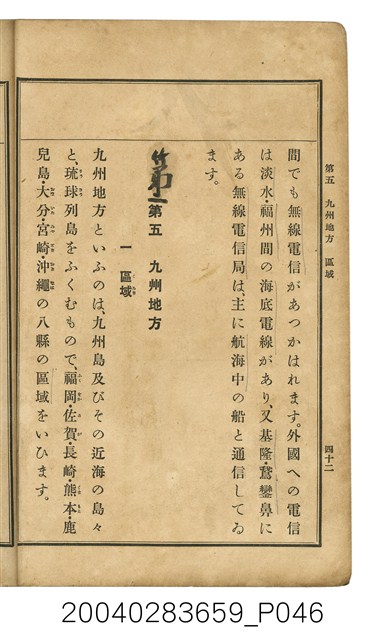 第五　九州地方　區域　四十二
間でも無線電信があつかはれます。外國への電信
は淡水・福州間の海底電線があり、又基隆・鵞鑾鼻に
ある無線電信局は、主に航海中の船と通信してゐ
ます。
第一
第五　九州地方
一　區域
九州地方といふのは、九州島及びその近海の島々
と、琉球列島をふくむもので、福岡・佐賀・長崎・熊本・鹿
兒島・大分・宮崎・沖繩の八縣の區域をいひます。
20040283659_P046